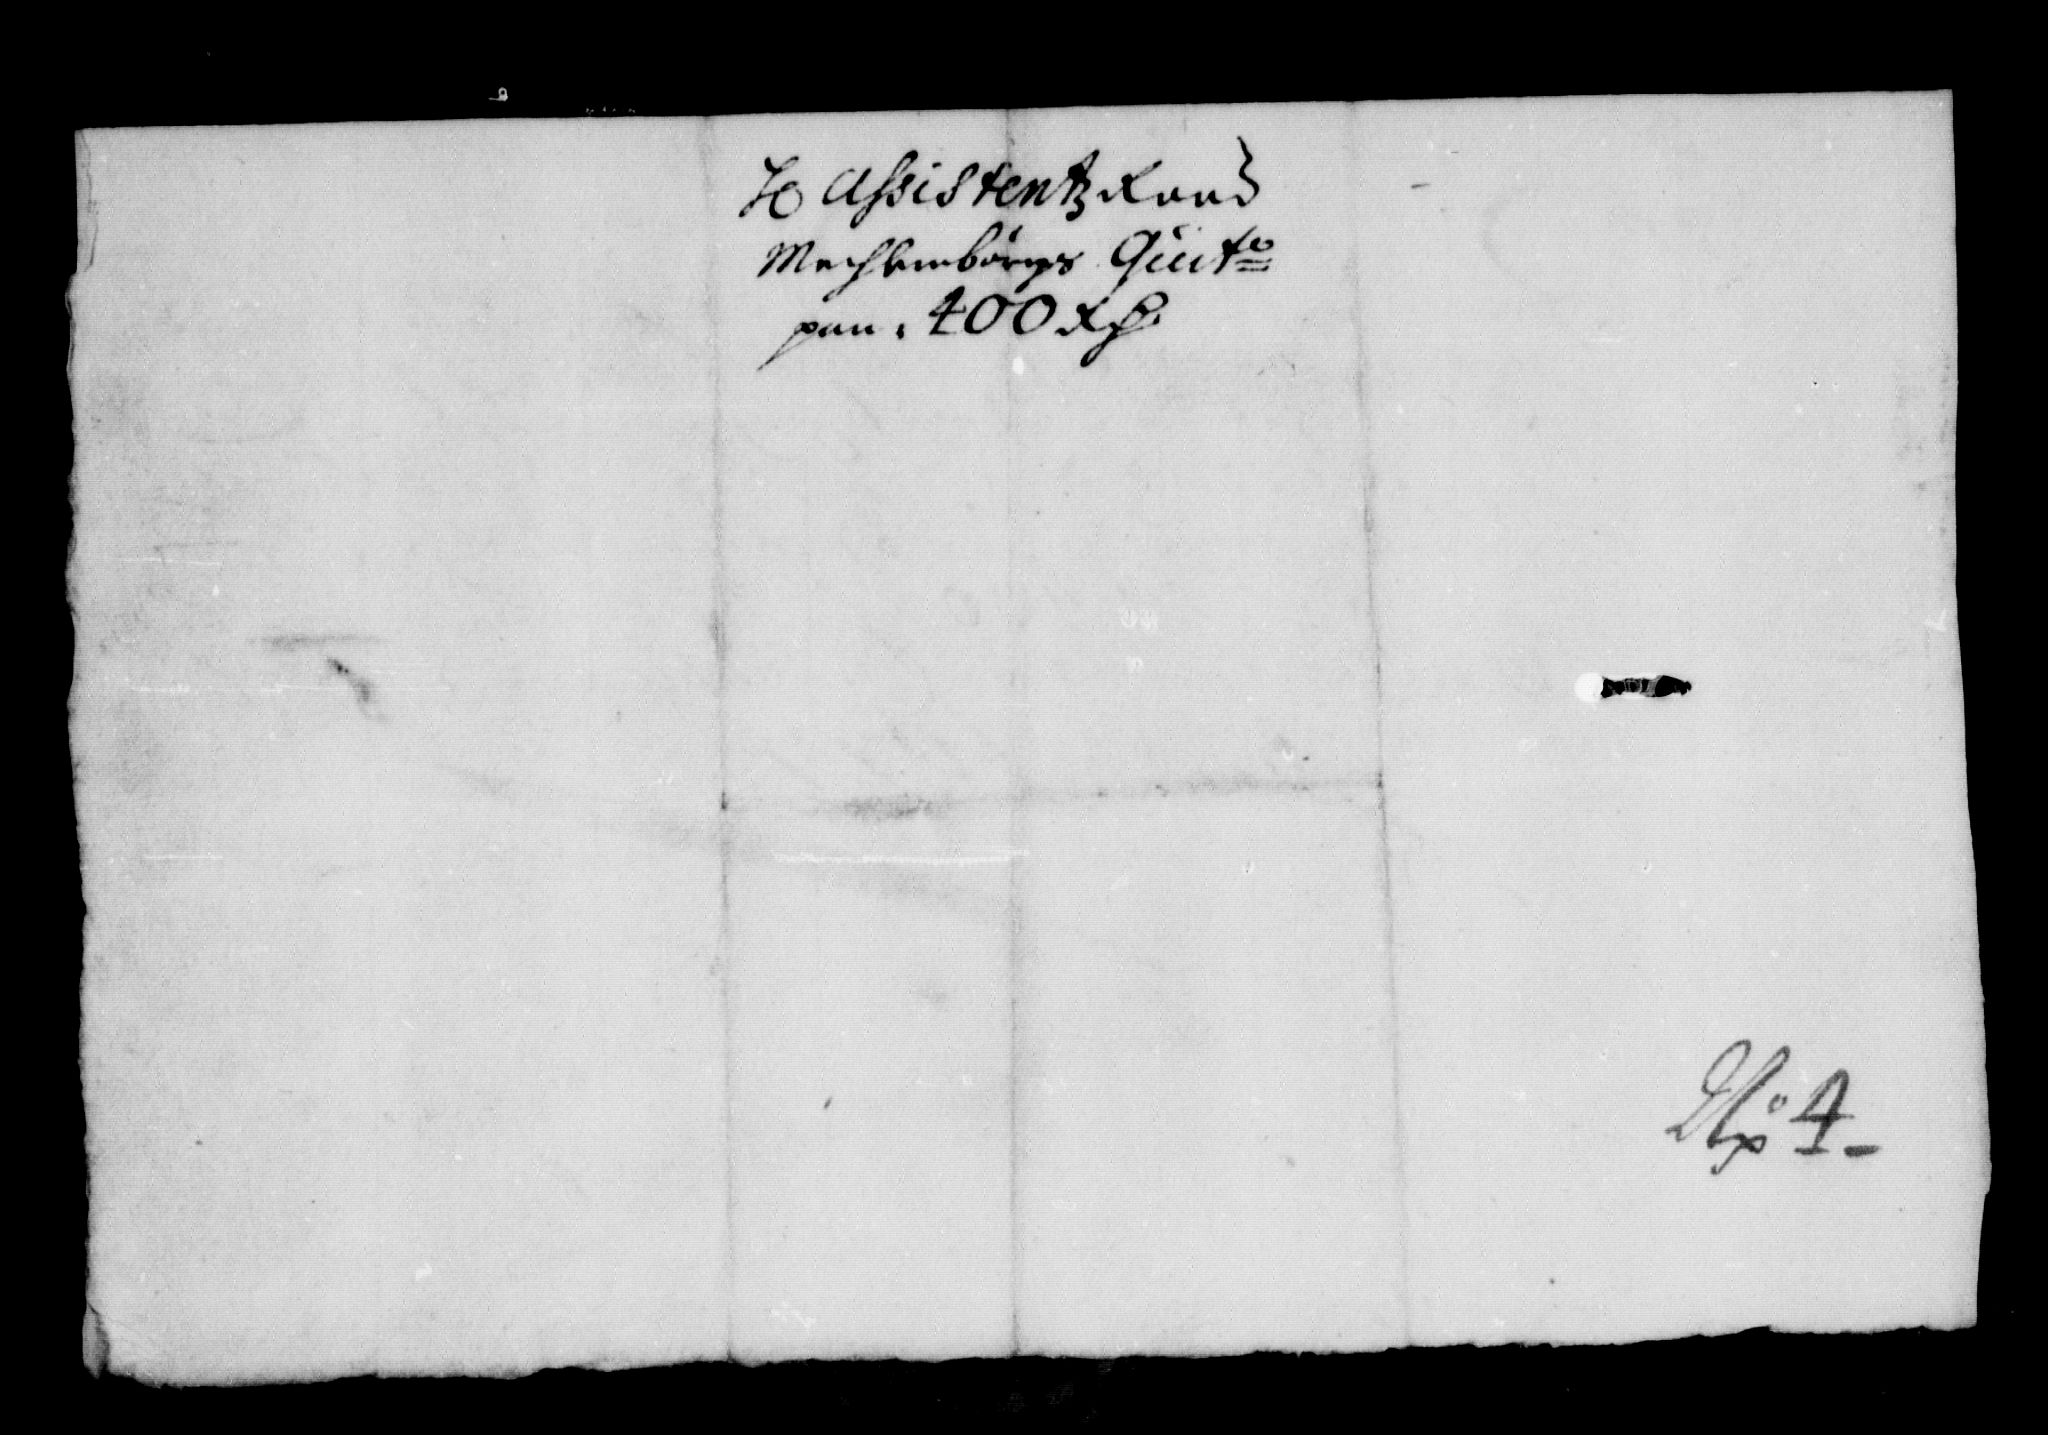 H Assistentz Raad
Mechlenborgs Quit:e
paa: 400 Rd:
No 4